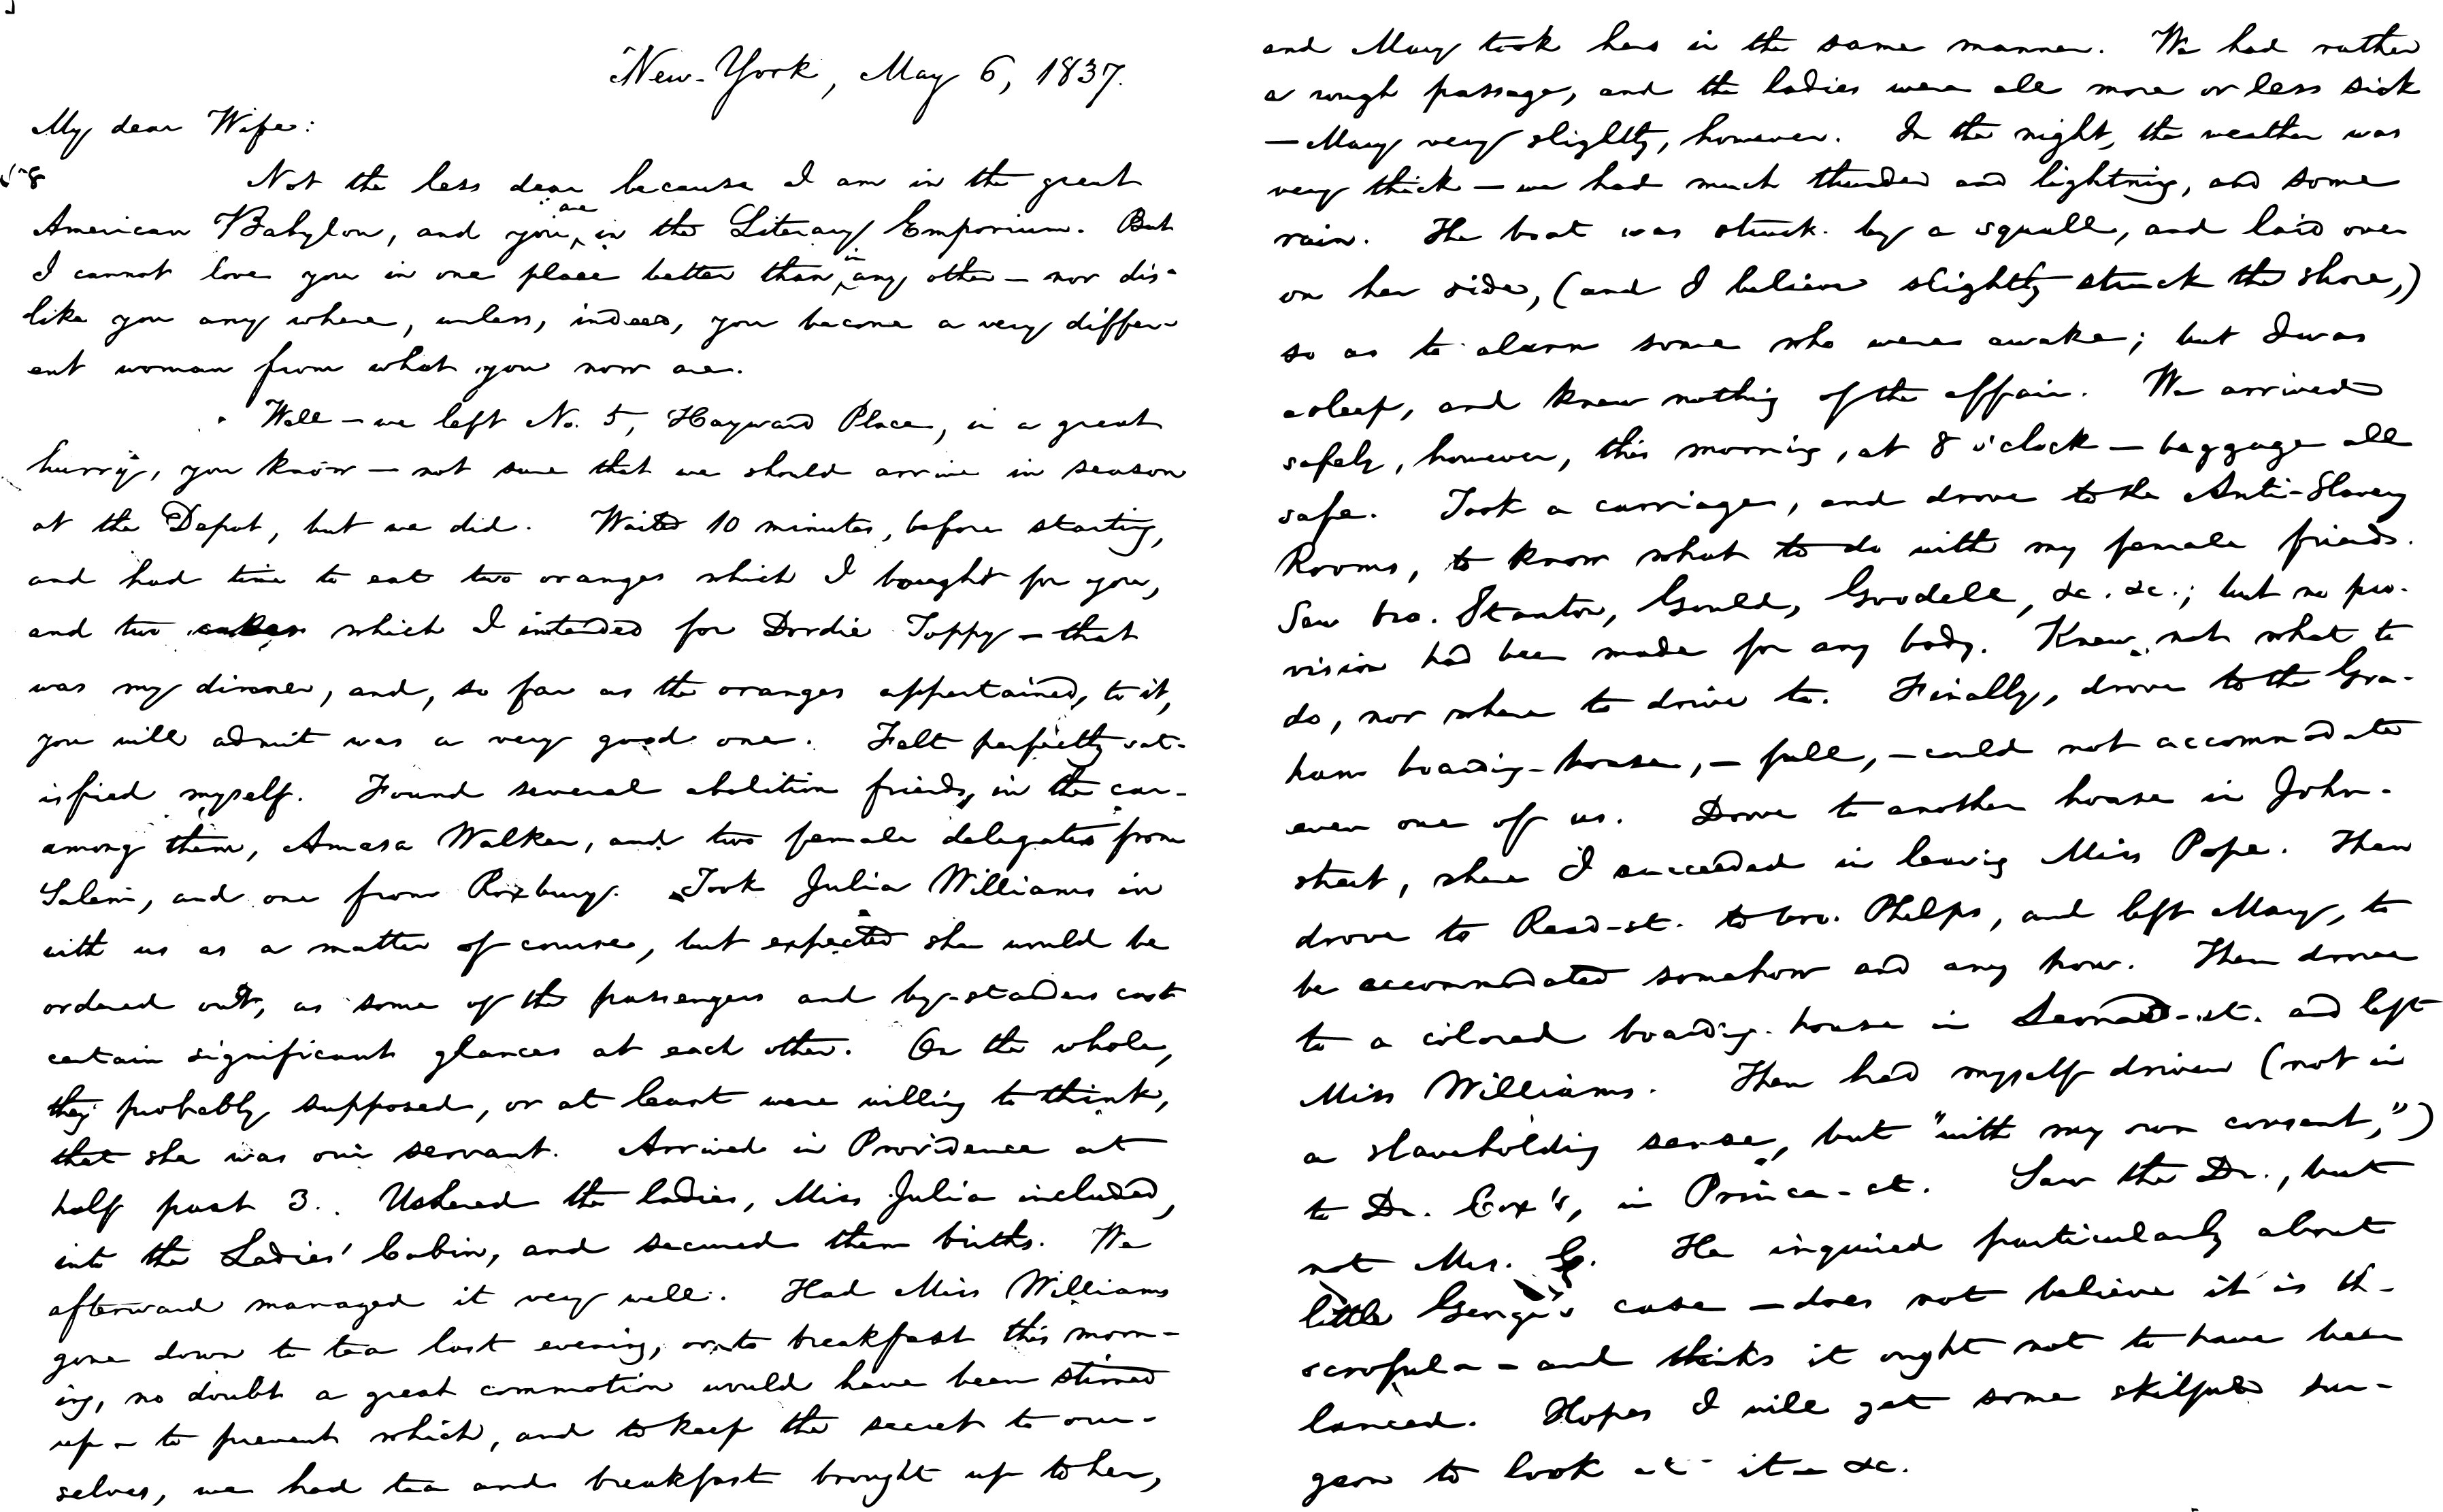 New-York, May 6, 1837.
My dear Wife:
Not the less dear because I am in the great
American Babylon, and you are in the Literary Emporium. But
I cannot love you in one place better than in any other — nor dis-
like you any where, unless, indeed, you become a very differ-
ent woman from what you now are.
Well — we left No. 5, Hayward Place, in a great
hurry, you know — not sure that we should arrive in season
at the Depot, but we did. Waited 10 minutes, before starting,
and had time to eat two oranges which I bought for you,
and two cakes which I intended for Dordie Toppy — that
was my dinner, and, so far as the oranges appertained, to it,
you will admit was a very good one. Felt perfectly sat-
isfied myself. Found several abolition friends, in the car—
among them, Amasa Walker, and two female delegates from
Salem, and one from Roxbury. Took Julia Williams in
with us as a matter of course, but expected she would be
ordered out, as some of the passengers and by-standers cast
certain significant glances at each other. On the whole,
they probably supposed, or at least were willing to think,
that she was our servant. Arrived in Providence at
half past 3. Ushered the ladies, Miss Julia included,
into the Ladies' Cabin, and secured them births. We
afterward managed it very well. Had Miss Williams
gone down to tea last evening, or to breakfast this morn-
ing, no doubt a great commotion would have been stirred
up — to prevent which, and to keep the secret to our-
selves, we had tea and breakfast brought up to her,
and Mary took hers in the same manner. We had rather
a rough passage, and the ladies were all more or less sick
— Mary very slightly, however. In the night, the weather was
very thick — we had much thunder and lightning, and some
rain. The boat was struck by a squall, and laid over
on her side, (and I believe slightly struck the shore,)
so as to alarm some who were awake; but I was
asleep, and knew nothing of the affair. We arrived
safely, however, this morning, at 8 o'clock — baggage all
safe. Took a carriage, and drove to the Anti-Slavery
Rooms, to know what to do with my female friends.
Saw bro. Stanton, Gould, Goodell, &c. &c.; but no pro-
vision had been made for any body. Knew not what to
do, nor where to drive to. Finally, drove to the Gra-
ham boarding-house, — full, — could not accommodate
even one of us. Drove to another house in John-
street, where I succeeded in leaving Miss Pope. Then
drove to Read-st. to bro. Phelps, and left Mary, to
be accommodated somehow and any how. Then drove
to a colored boarding-house in Leonard-st. and left
Miss Williams. Then had myself driven (not in
a slaveholding sense, but "with my own consent,")
to Dr. Cox's, in Prince-st. Saw the Dr., but
not Mrs. C. He inquired particularly about
little Georgie's case — does not believe it is th-
scrofula — and thinks it ought not to have been
lanced. Hopes I will get some skilful sur-
geon to look at it — &c.